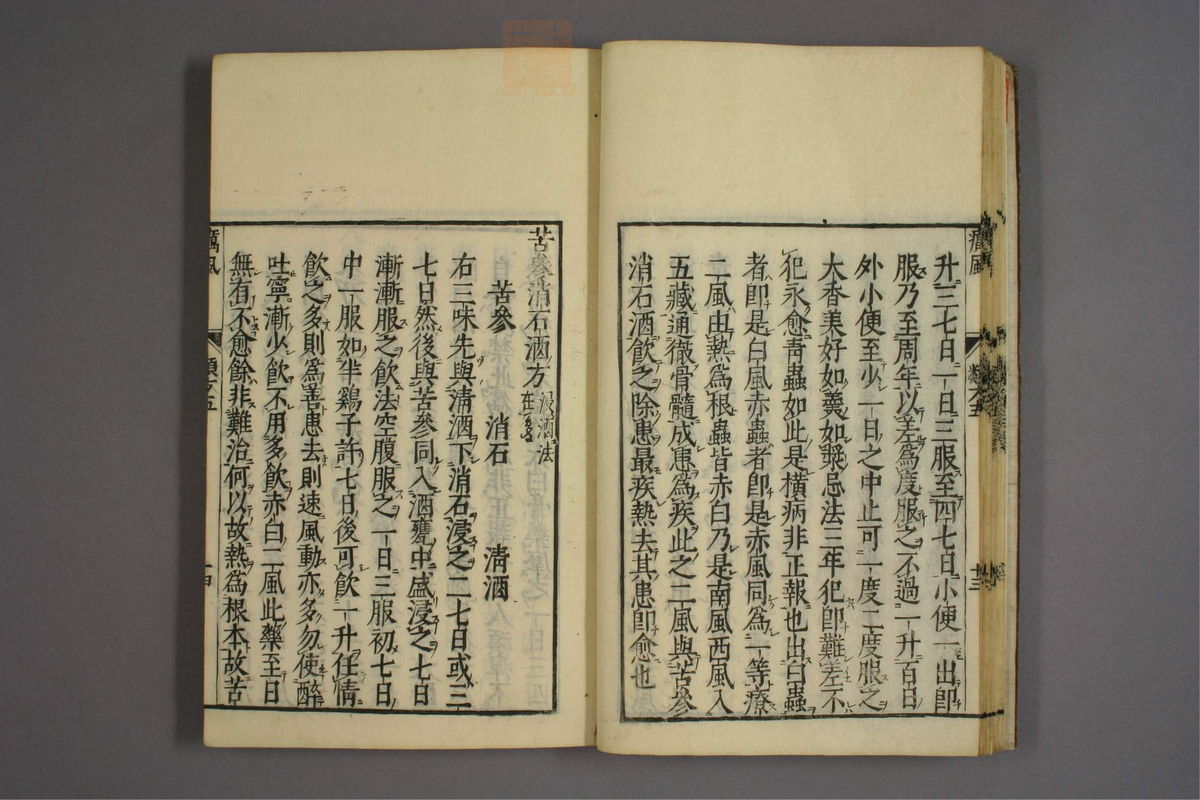 升三七日一日三服至四七日小便一出卽
服乃至周年以差為度服之不過一升百日
外小便至少一日之中止可一度二度服之
大香美好如羮如漿忌法三年犯卽難差不
犯永愈靑蟲如此是橫病非正報也出白蟲
者卽是白風赤蟲者卽是赤風同為一等療
二風由熱爲根蟲皆赤白乃是南風西風入
五藏通徹骨髓成患為疾此之二風與苦參
消石酒飲之除患最疾熱去其患卽愈也
苦參消石酒方 浸酒法在後
苦參 消石 清酒
右三味先與清酒下消石浸之二七日或三
七日然後與苦參同入酒甕中盛浸之七日
漸漸服之飲法空腹服之一日三服初七日
中一服如半鷄子許七日後可飲一升任情
飲之多則爲善患去則速風動亦多勿使醉
吐寧漸少飲不用多飲赤白二風此藥至日
無有不愈餘非難治何以故熱爲根本故苦
癘風